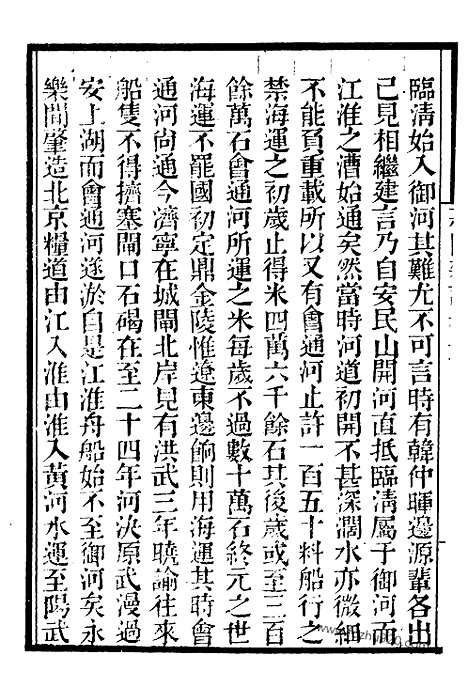 臨清始入御河其難尤不可言時有韓仲暉邊源輩各出
己見相繼建言乃自安民山開河直抵臨清屬于御河而
江淮之漕始通矣然當時河道初開不甚深濶水亦微細
不能負重載所以又有會通河止許一百五十料船行之
禁海運之初歲止得米四萬六千餘石其後歲或至三百
餘萬石會通河所運之米每歲不過數十萬石終元之世
海運不罷國初定鼎金陵惟遼東邊餉則用海運其時會
通河尚通今濟寧在城閘北岸見有洪武三年曉諭往來
船隻不得擠塞閘口石碣在至二十四年河決原武漫過
安上湖而會通河遂淤自是江淮舟船始不至御河矣永
樂間肇造北京糧道由江入淮由淮入黃河水運至陽武